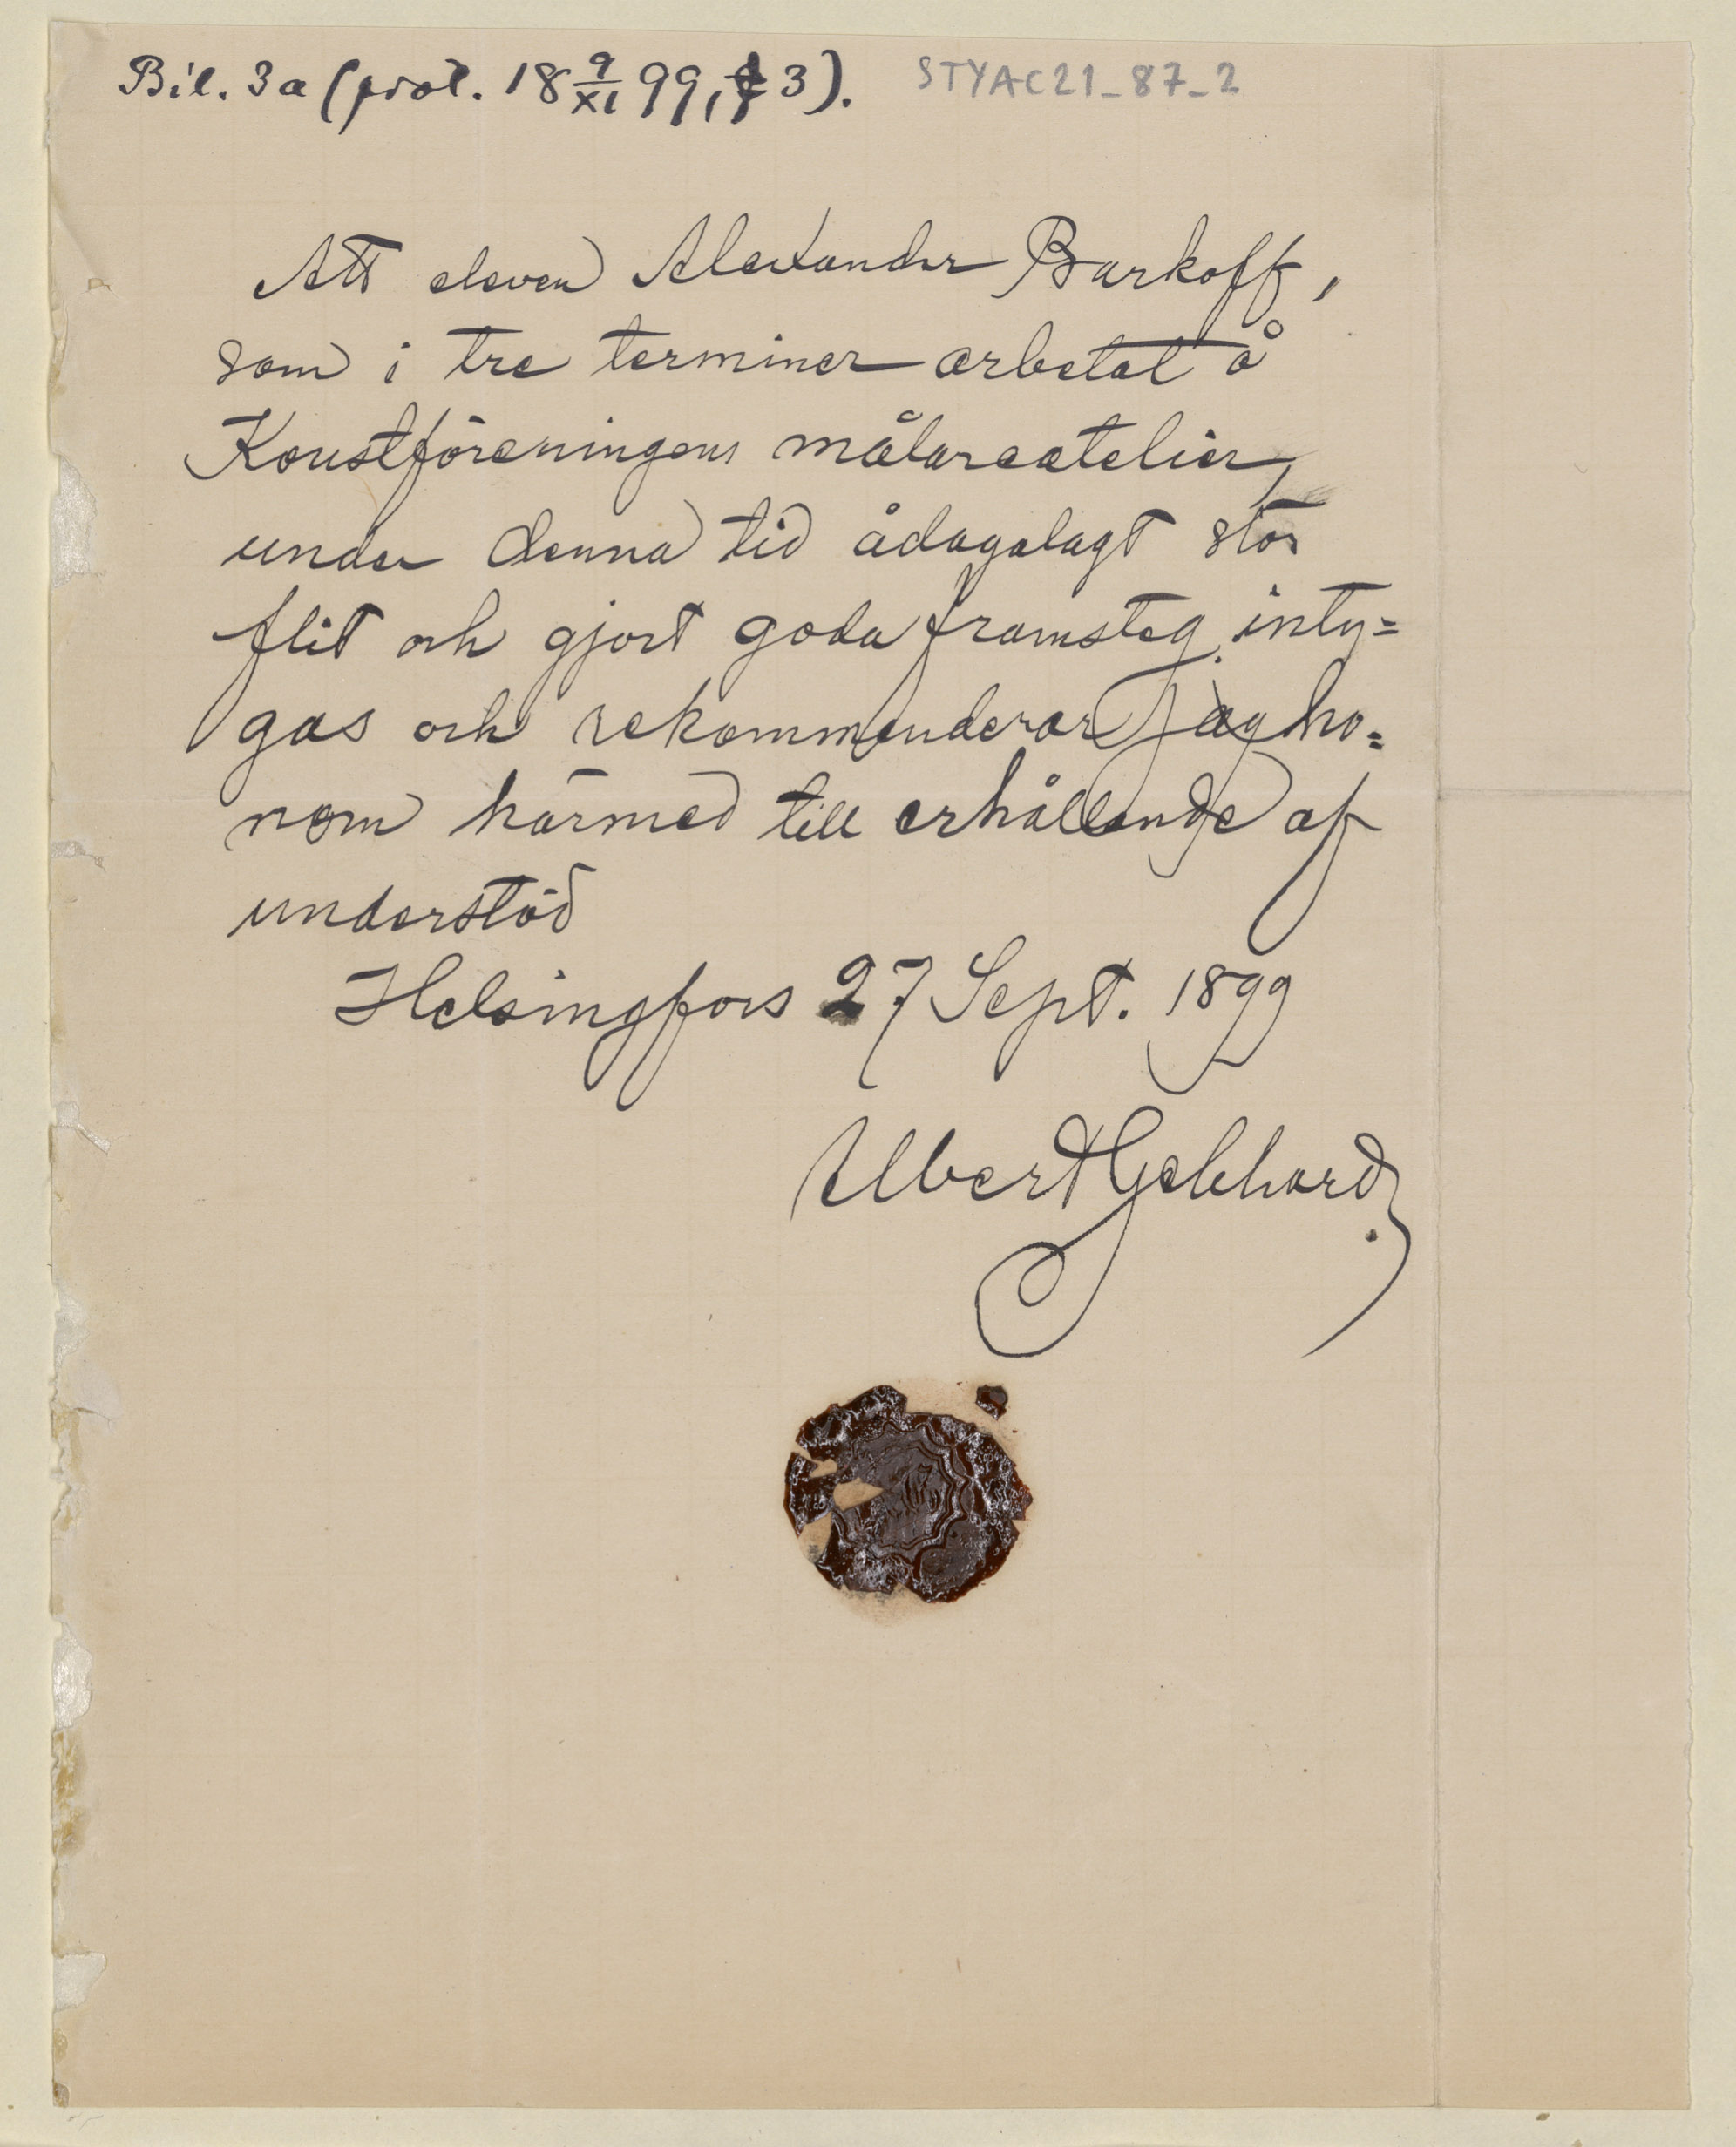 Bil. 3a (prot. 18 9/XI 99, § 3). STYAC21_87_2
Att eleven Alexander Barkoff,
som i tre terminer arbetat å
Konstföreningens målareatelier,
under denna tid ådagalagt stor
flit och gjort goda framsteg, inty=
gas och rekommenderar jag ho=
nom härmed till erhållande af
understöd
Helsingfors 27 Sept. 1899
Albert Gebhard